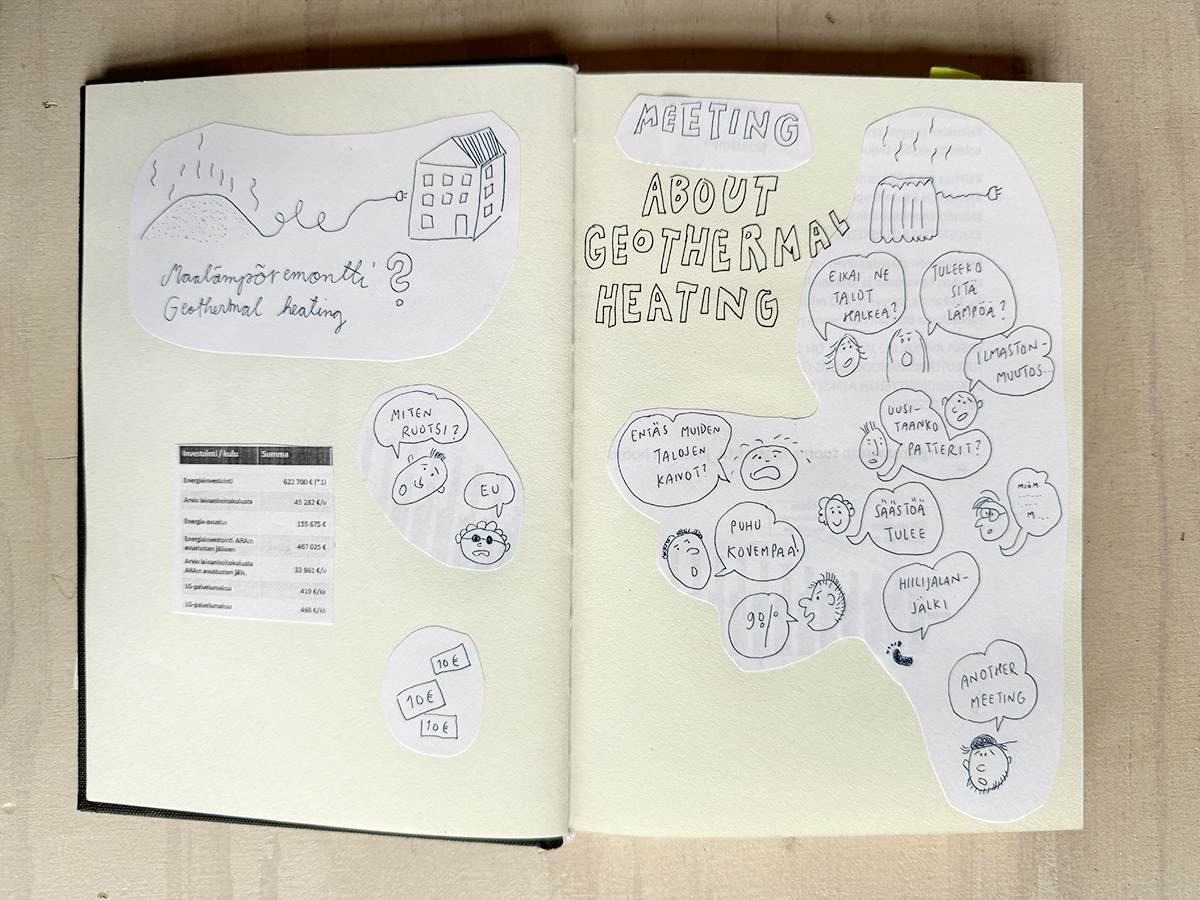 Maalämpöremontti ?
Geothermal heating
MITEN
RUOTSI?
EU
Investointi / kulu Summa
Energiainvestointi 622 700 € (*1)
Arvio lainanhoitokulusta 45 282 €/v
Energia-avustus 155 675 €
Energiainvestointi ARA:n
avustusten jälkeen 467 025 €
Arvio lainanhoitokulusta
ARA:n avustusten jälk. 33 961 €/v
LG-palvelumaksu 419 €/kk
LG-palvelumaksu 468 €/kk
10 €
10 €
10 €
MEETING
ABOUT
GEOTHERMAL
HEATING
EIKAI NE
TALOT
HALKEA?
TULEEKO
SITÄ
LÄMPÖÄ?
ILMASTON-
MUUTOS...
UUSI-
TAANKO
PATTERIT?
ENTÄS MUIDEN
TALOJEN
KAIVOT?
SÄÄSTÖÄ
TULEE
M...
PUHU
KOVEMPAA!
90%
HIILIJALAN-
JÄLKI
ANOTHER
MEETING